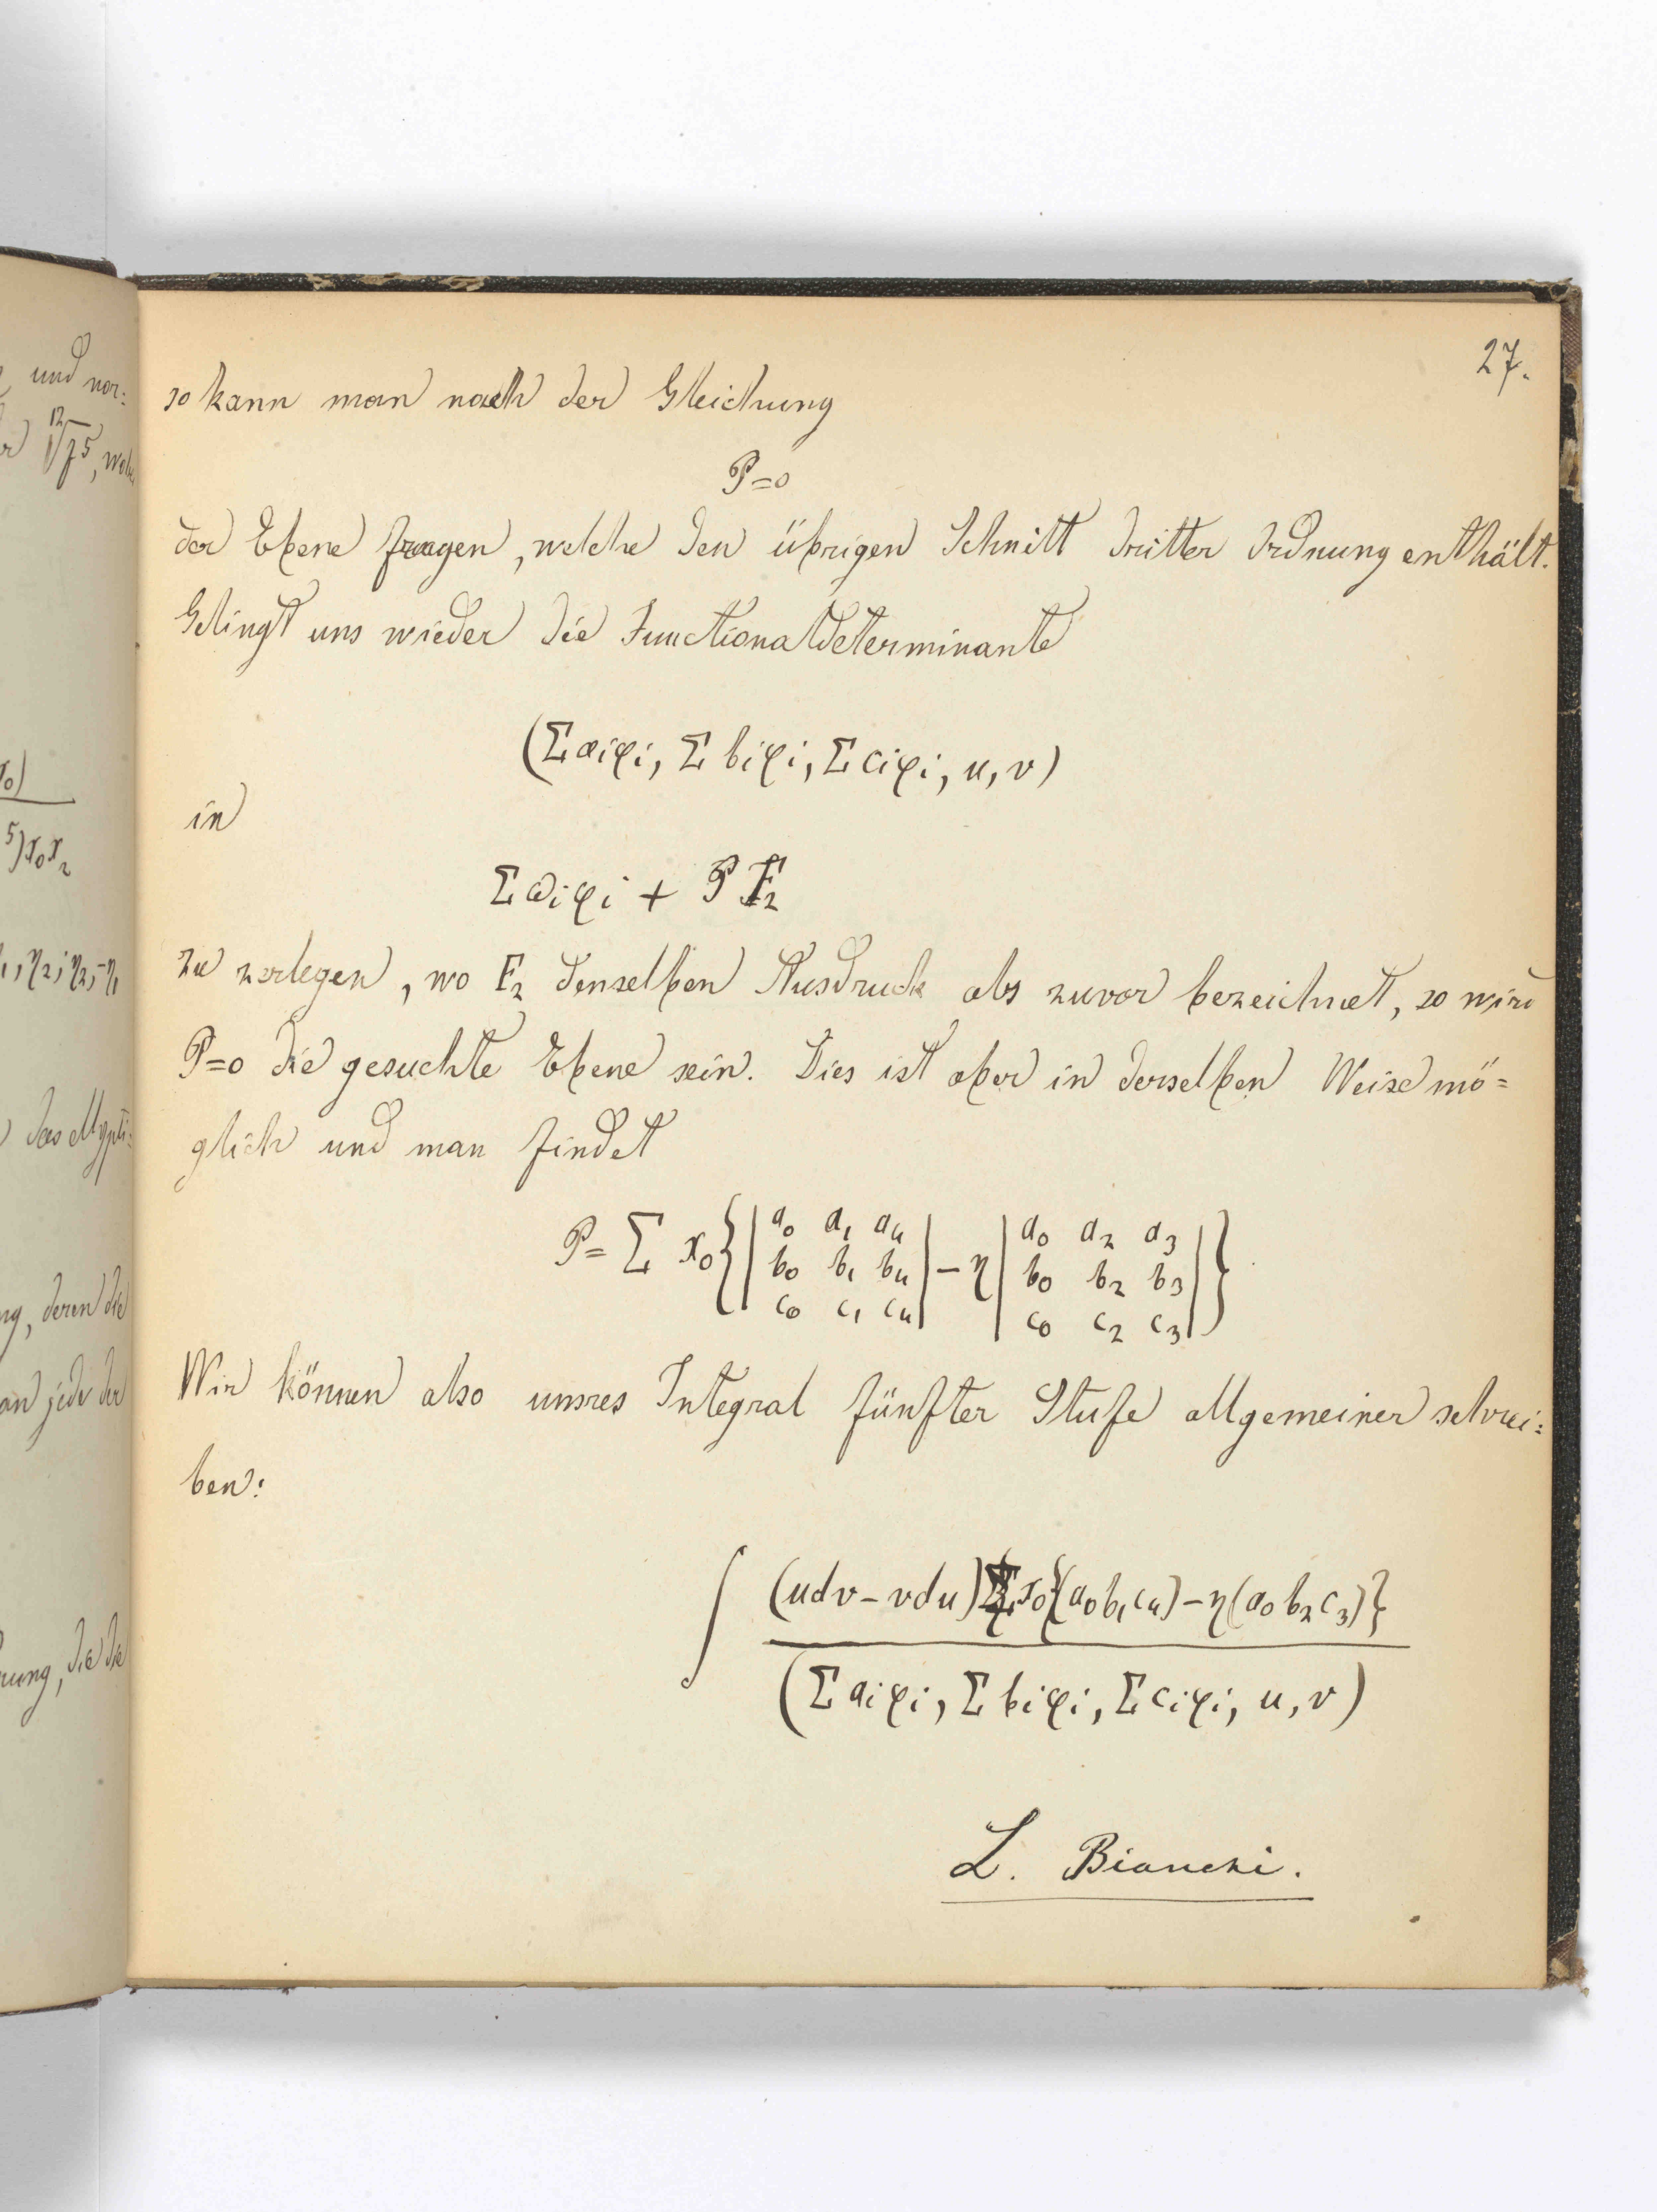 27.
so kann man nach der Gleichung
P=0
der Ebene fragen, welche den übrigen Schnitt dritter Ordnung enthält.
Gelingt uns wieder die Functionaldeterminante
(Σaiφi, Σbiφi, Σciφi, u, v)
in
Σωiφi + P F₂
zu zerlegen, wo F₂ denselben Ausdruck als zuvor bezeichnet, so wird
P=0 die gesuchte Ebene sein. Dies ist aber in derselben Weise mö=
glich und man findet
P= Σ x₀{|a₀ a₁ a₄| − η|a₀ a₂ a₃|}
b₀ b₁ b₄ b₀ b₂ b₃
c₀ c₁ c₄ c₀ c₂ c₃
Wir können also unsres Integral fünfter Stufe allgemeiner schrei=
ben:
∫ (udv−vdu)Σx₀{(a₀b₁c₄)−η(a₀b₂c₃)}
(Σaiφi, Σbiφi, Σciφi, u, v)
L. Bianchi.